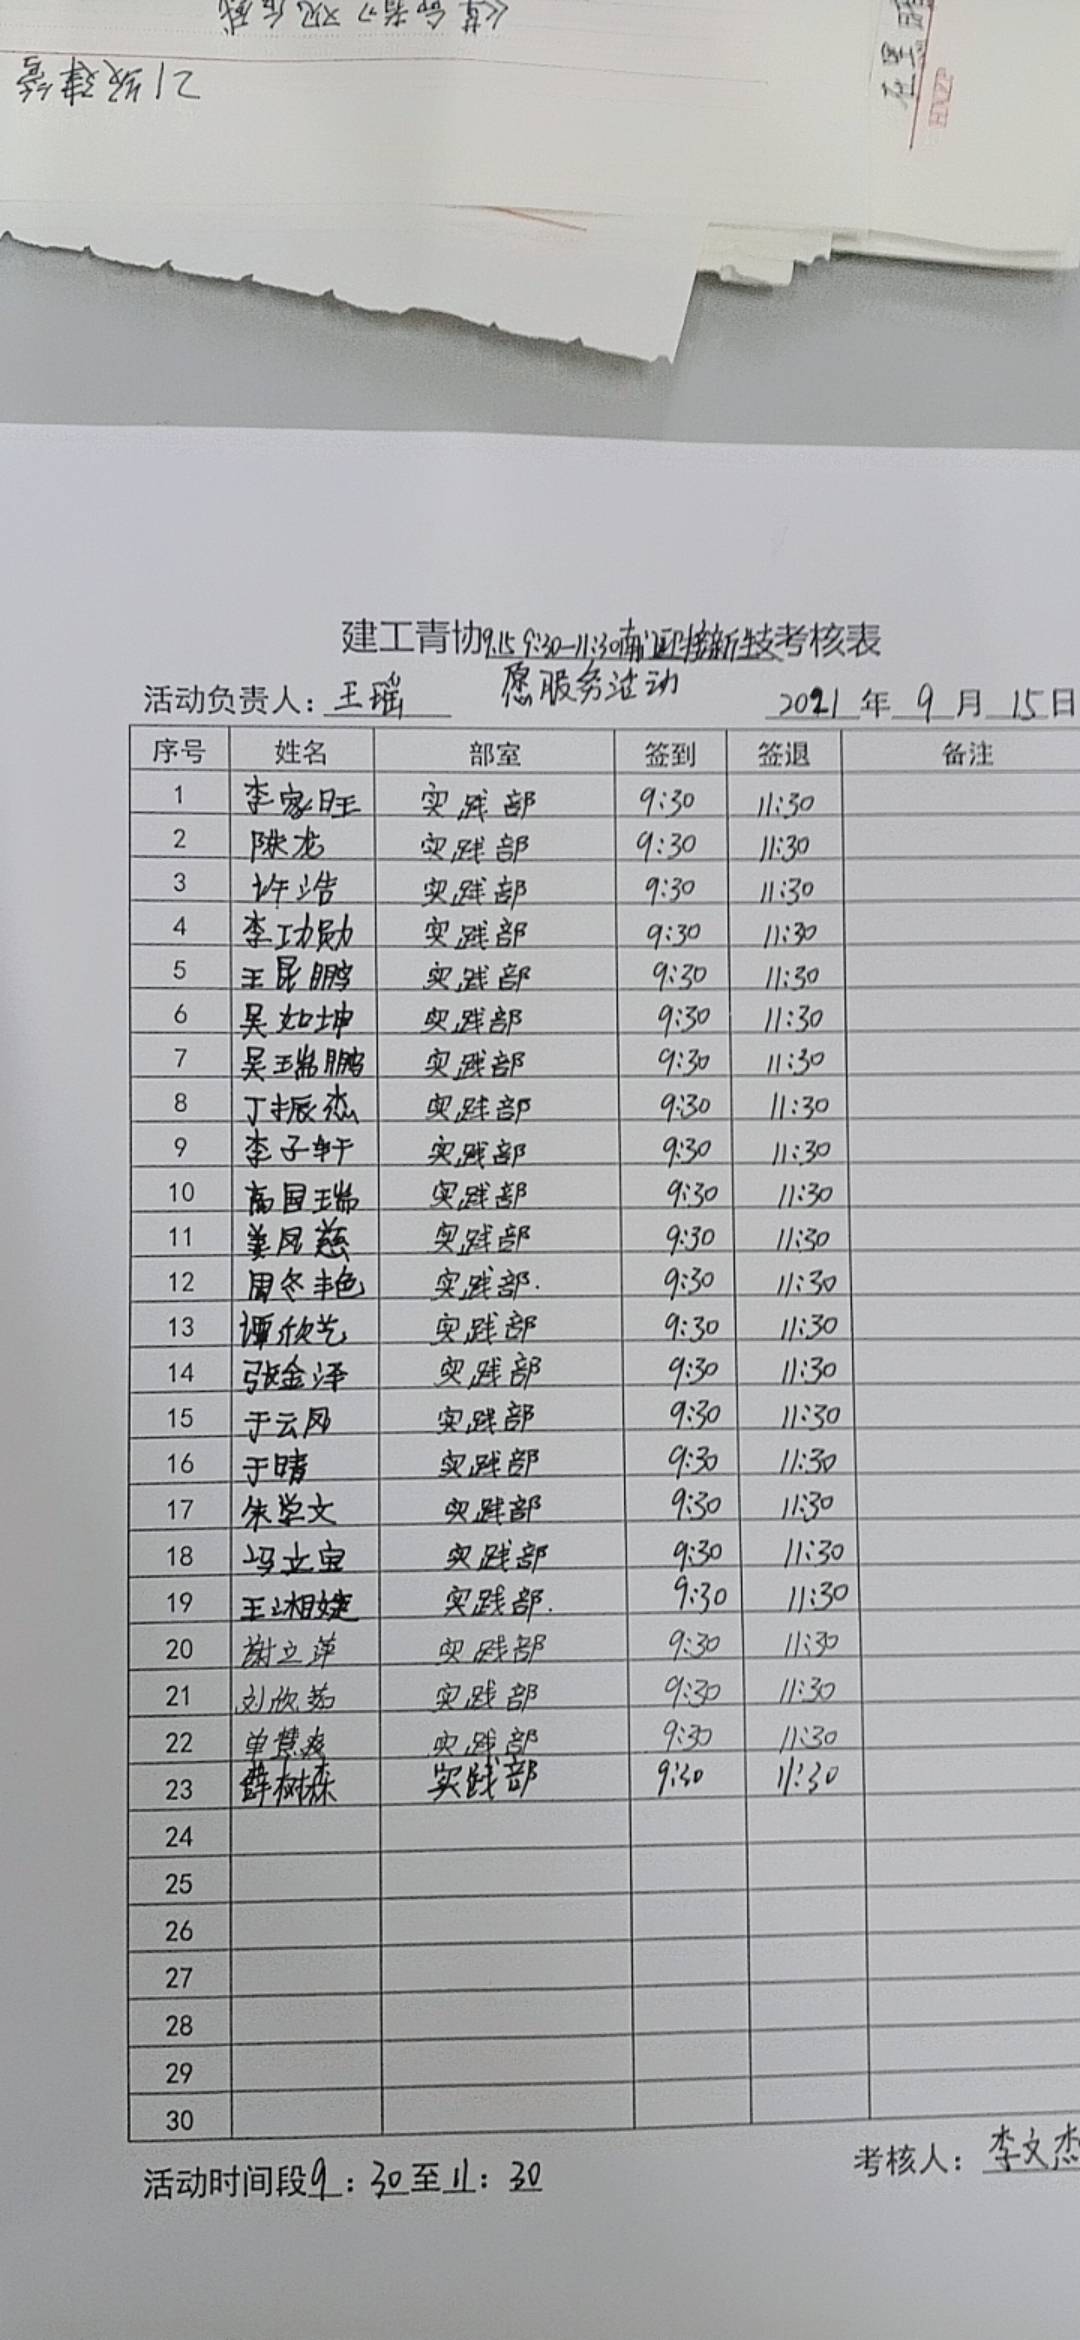 21级建管
HVZT
建工青协9.15 9:30-11:30南门迎接新生志考核表
愿服务活动
活动负责人：王瑶 2021年 9 月 15日
序号 姓名 部室 签到 签退 备注
1 李家旺 实践部 9:30 11:30
2 陈龙 实践部 9:30 11:30
3 许浩 实践部 9:30 11:30
4 李功勋 实践部 9:30 11:30
5 王昆鹏 实践部 9:30 11:30
6 吴如坤 实践部 9:30 11:30
7 吴瑞鹏 实践部 9:30 11:30
8 丁振杰 实践部 9:30 11:30
9 李子轩 实践部 9:30 11:30
10 高国瑞 实践部 9:30 11:30
11 姜凤慈 实践部 9:30 11:30
12 周冬艳 实践部. 9:30 11:30
13 谭欣艺 实践部 9:30 11:30
14 张金泽 实践部 9:30 11:30
15 于云凤 实践部 9:30 11:30
16 于晴 实践部 9:30 11:30
17 朱学文 实践部 9:30 11:30
18 冯立宝 实践部 9:30 11:30
19 王湘婕 实践部. 9:30 11:30
20 谢立萍 实践部 9:30 11:30
21 刘欣茹 实践部 9:30 11:30
22 单慧爽 实践部 9:30 11:30
23 薛树森 实践部 9:30 11:30
24
25
26
27
28
29
30
活动时间段9：30至11：30 考核人：李文杰